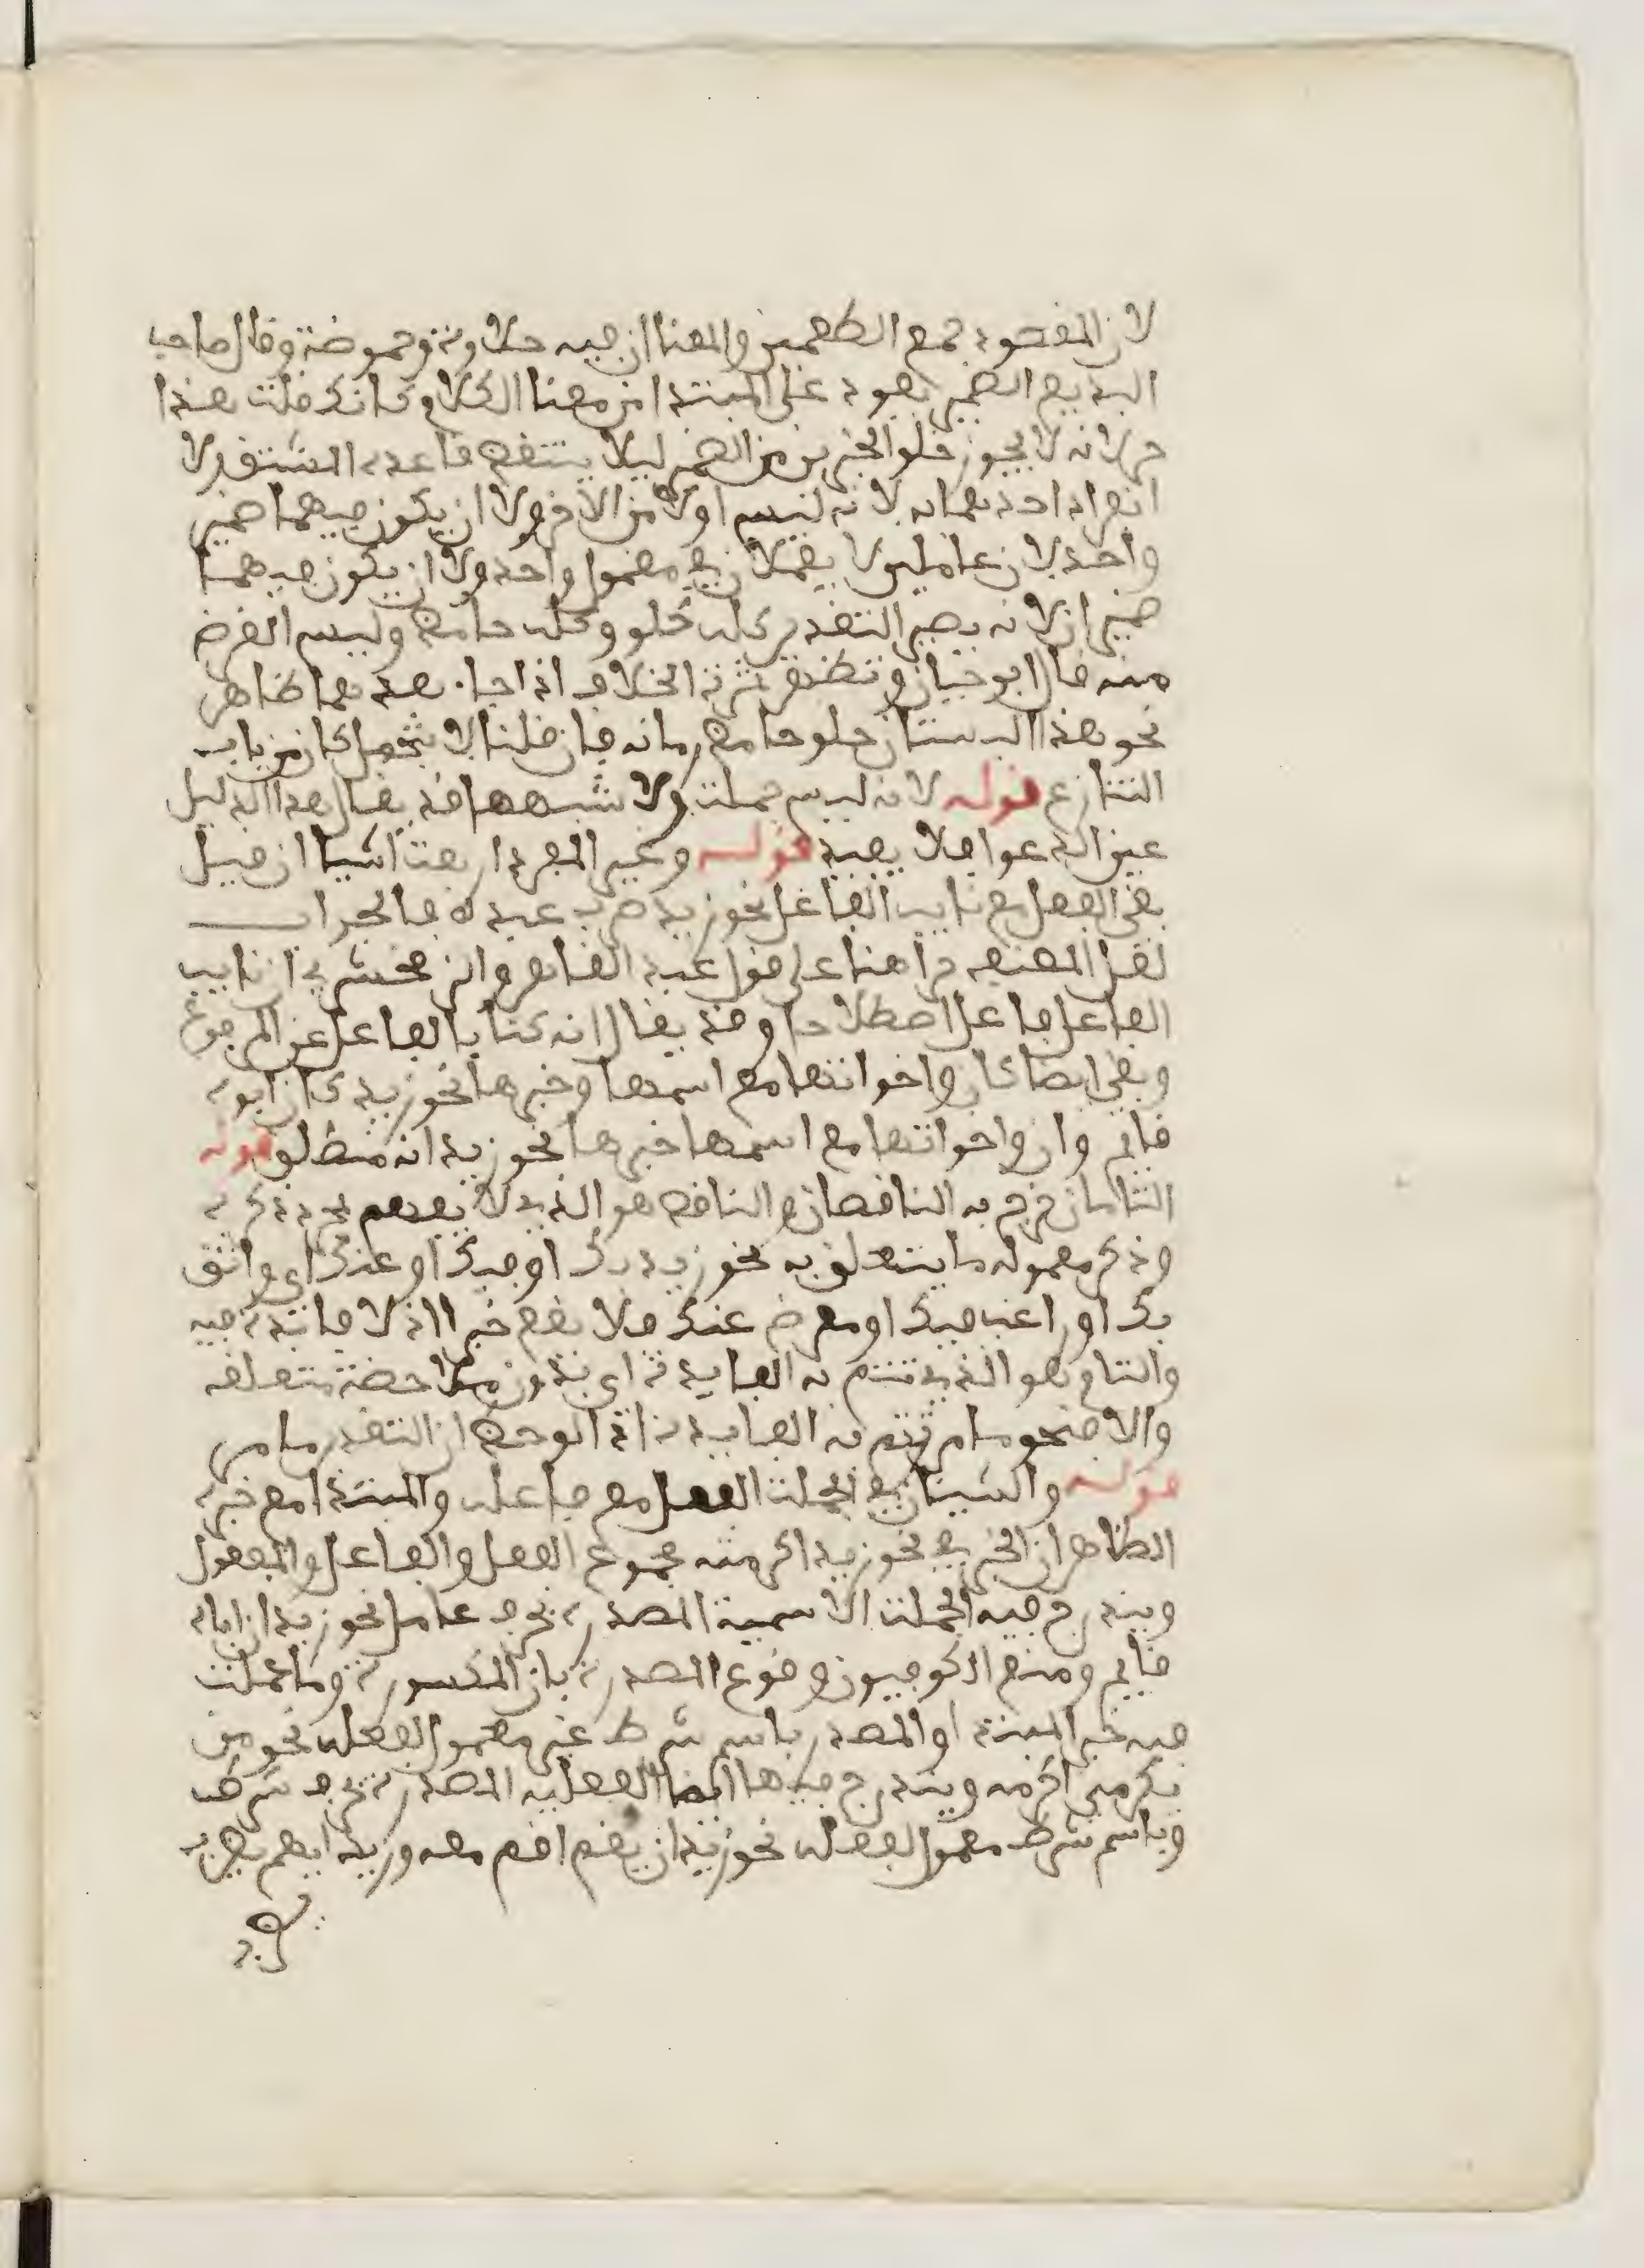 لان المقصود جمع الطعمين والمعنا ان فيه حلاوة وحموضة وقال صاحب
البديع الضمير يعود على المبتدا من معنا الكلام كانك قلت هذا
مز لانه لا يجوز خلو الخبرين من الضمير ليلا ينتقض قاعدة المشتق ولا
انفراد احدهما به لانه ليس اولا من الاخر ولا ان يكون فيهما ضمير
واحد لان عاملين لا يعملان في معمول واحد ولا ان يكون فيهما
ضميران لانه يصير التقدير كله حلو وكله حامض وليس الغرض
منه قال ابو حيان وتظهر ثمرة الخلاف اذا جا بعدهما ظاهر
نحو هذا البستان حلو حامض رمانه فان قلنا لا يتحمل كان من باب
التنازع قوله لانه ليس جملة ولا شبهها قد يقال هذا الدليل
عين الدعوا فلا يفيد قوله وغير المفرد اربعة اشيا ان قيل
بقى الفعل مع نايب الفاعل نحو زيد ضرب عبده فالجواب
لعل المصنف مر هنا على قول عبد القاهر والزمخشري ان نايب
الفاعل فاعل اصطلاحا وقد يقال انه كنا بالفاعل عن المرفوع
وبقى ايضا كان واخواتها مع اسمها وخبرها نحو زيد كان ابوه
قايم وان واخواتها مع اسمها خبرها نحو زيد انه منطلق قوله
التامان خرج به الناقصان والناقص هو الذي لا يفهم بمجرد ذكره
وذكر معموله ما يتعلق به نحو زيد بك او فيك او عنك اي واثق
بك او راغب فيك او معرض عنك فلا يقع خبرا اذ لا فايدة فيه
والتام هو الذي تتم به الفايدة اي بدون ملاحضة متعلقه
والا فنحو ما مر تتم به الفايدة اذا لوحظ ان التقدير ما مر
قوله والشيئان في الجملة الفعل مع فاعله والمبتدا مع خبره
الظاهر ان الخبر في نحو زيد اكرمته مجموع الفعل والفاعل والمفعول
ويندرج فيه الجملة الاسمية المصدرة بحرف عامل نحو زيد ان اباه
قايم ومنع الكوفيون وقوع المصدرة بان المكسورة وما عملت
فيه خبر المبتدا والمصدر باسم شرط غير معمول لفعله نحو من
يكرمني اكرمه ويندرج فيها ايضا الفعلية المصدرة بحرف شرط
وباسم شرط معمول لفعله نحو زيد ان يقم اقم معه وزيد ايهم يضرب